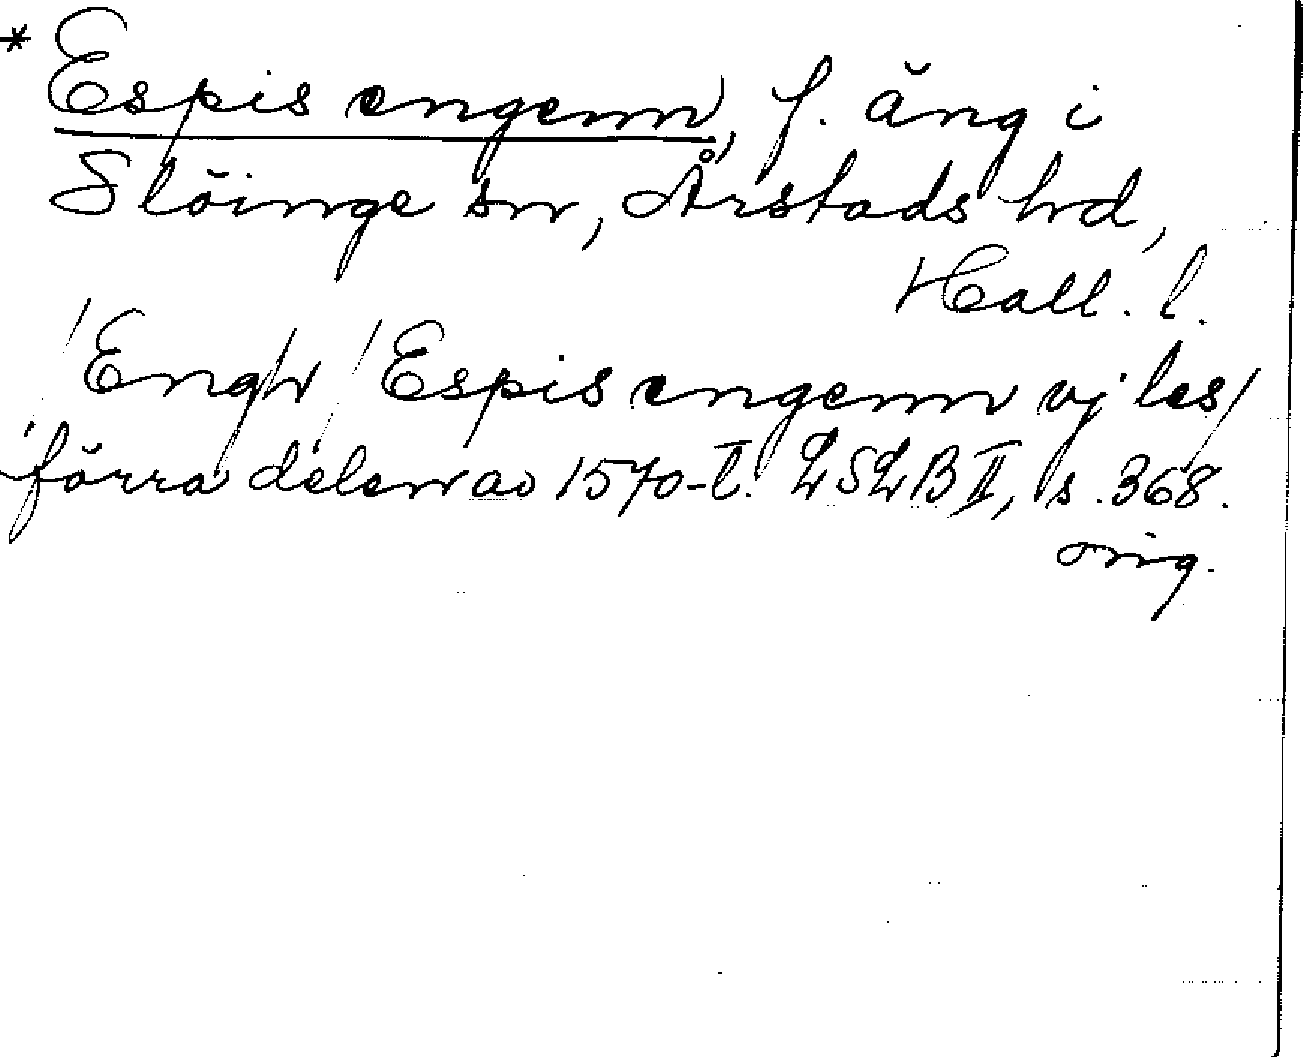 * Espis engenn, f. äng i
Slöinge sn, Årstads hd,
Hall. l.
/Engh/ /Espis engenn vj les/
förra delen av 1570-t. LSLB II, s. 368.
orig.